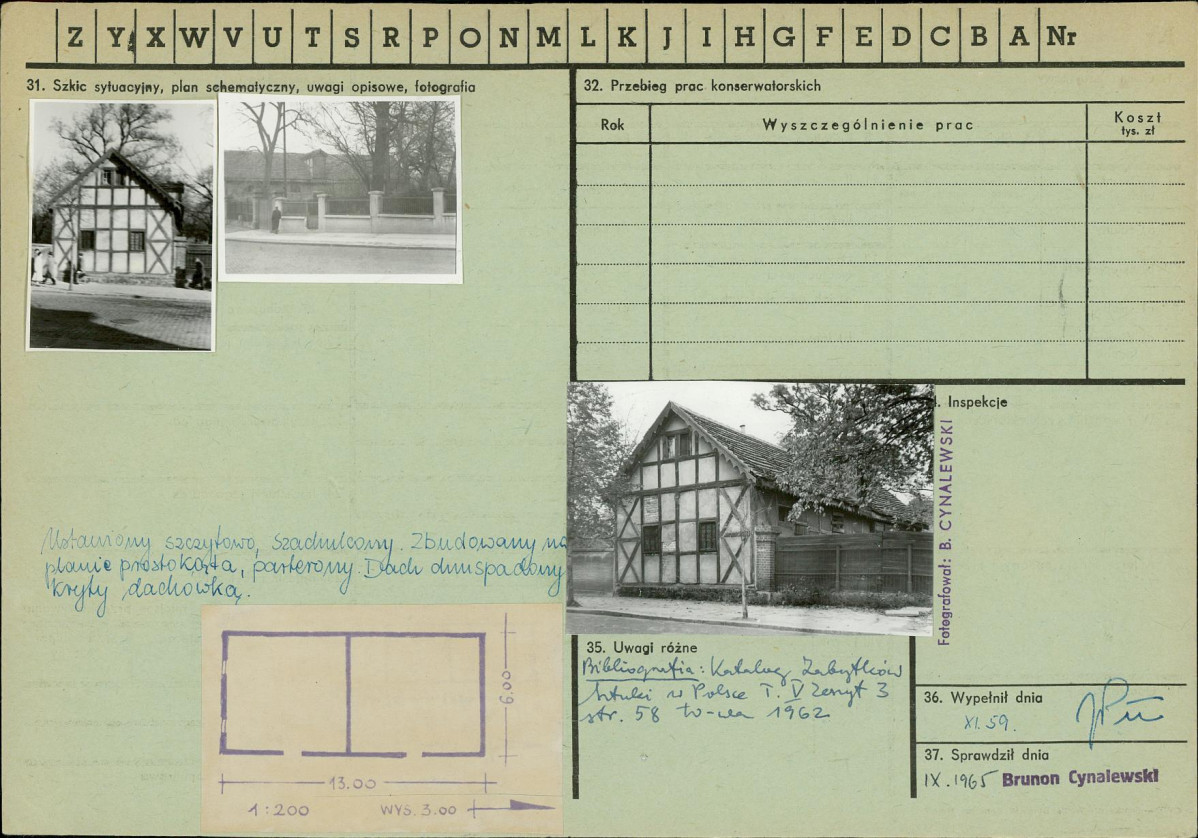 Z Y X W V U T S R P O N M L K J I H G F E D C B A Nr
31. Szkic sytuacyjny, plan schematyczny, uwagi opisowe, fotografia
Ustawiony szczytowo, szachulcowy. Zbudowany na
planie prostokąta, parterowy. Dach dwuspadowy
kryty dachówką.
6.00
13.00
1:200 WYS. 3.00
32. Przebieg prac konserwatorskich
Rok Wyszczególnienie prac Koszt
tys. zł
Inspekcje
Fotografował: B. CYNALEWSKI
35. Uwagi różne
Bibliografia: Katalog Zabytków
Sztuki w Polsce T. V Zeszyt 3
str. 58 W-wa 1962
36. Wypełnił dnia
XI.59.
37. Sprawdził dnia
IX.1965 Brunon Cynalewski